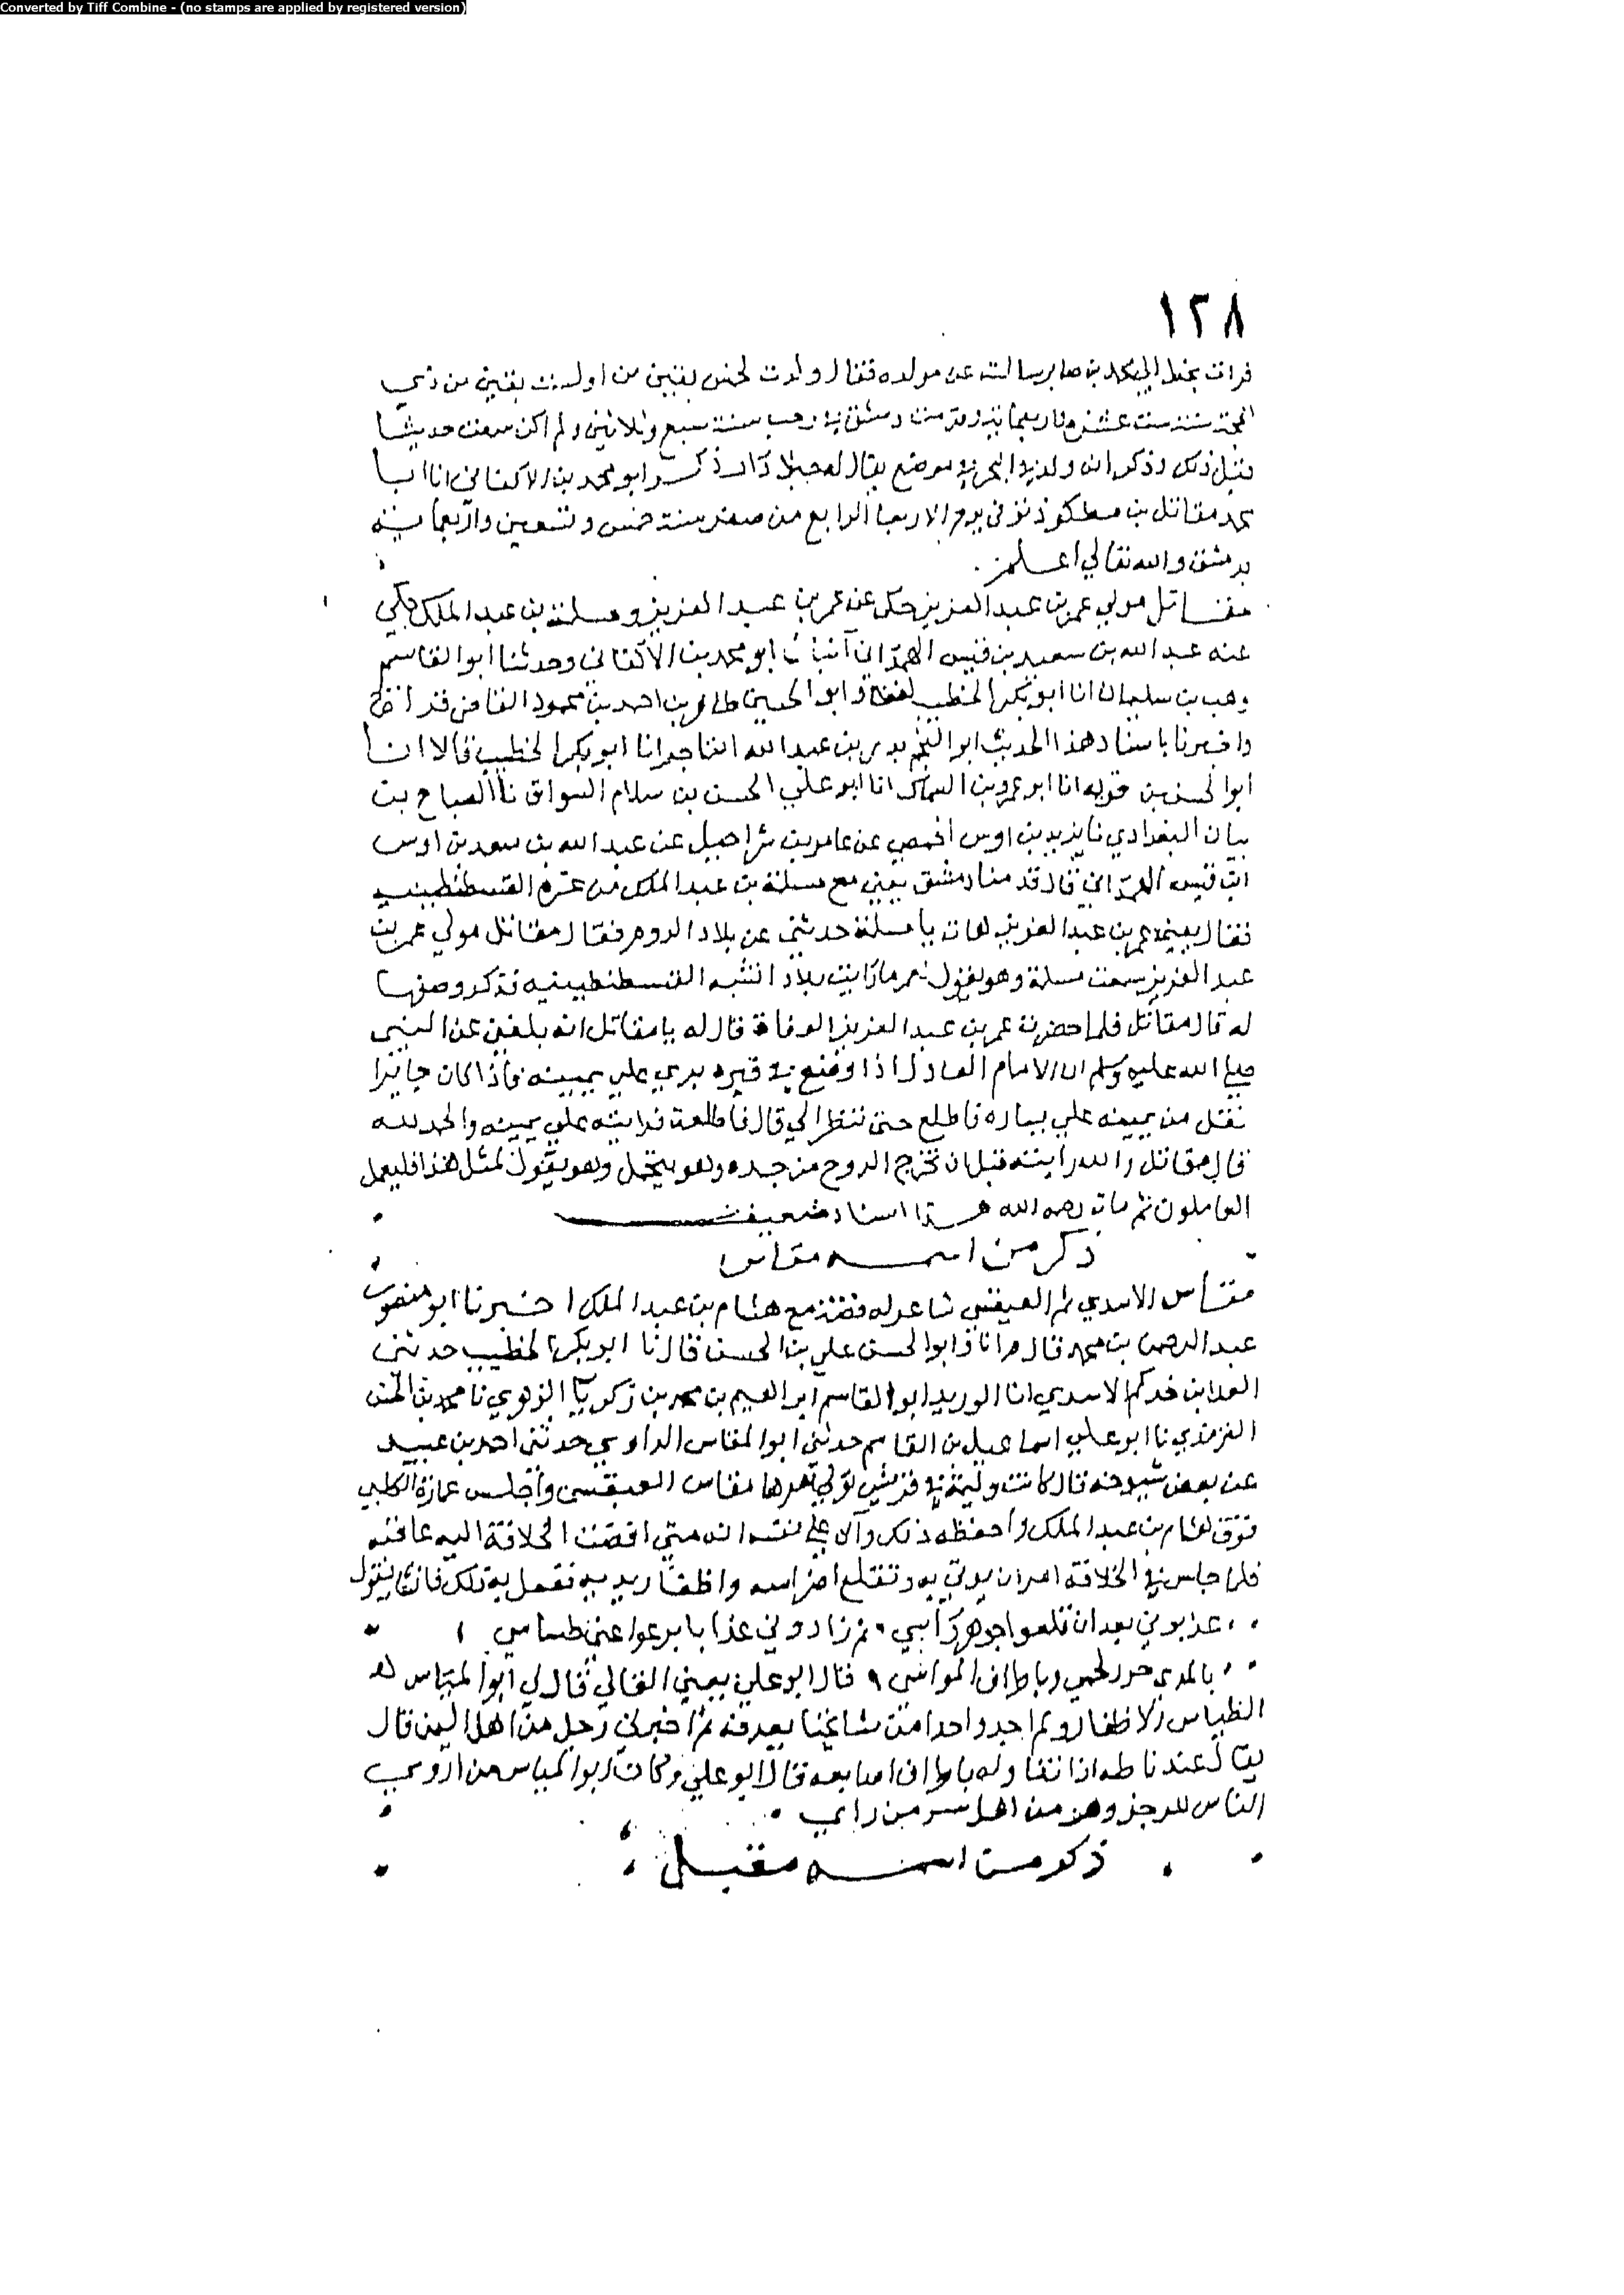 Converted by Tiff Combine - (no stamps are applied by registered version)
١٢٨
قرات بخط ابي محمد بن صابر سالته عن مولده فقال ولدت لخمس بقين من او لست بقين من ذي
الحجة سنة ست عشرة واربعماية وقدمت دمشق في رجب سنة سبع وثلاثين ولم اكن سمعت حديثا
قبل ذلك وذكر انه ولد في البحر في موضع يقال له ذكر ابو محمد بن الاكفاني ان ابا
محمد مقاتل بن مطكوذ توفي يوم الاربعا الرابع من صفر سنة خمس وتسعين واربعماية
بدمشق والله تعالي اعلم
مقاتل مولي عمر بن عبد العزيز حكى عن عمر بن عبد العزيز ومسلمة بن عبد الملك حكي
عنه عبد الله بن سعيد بن قيس الهمداني انبانا ابو محمد بن الاكفاني وحدثنا ابو القاسم
وهب بن سلمان انا ابو بكر الخطيب لفظا وابو الحسين طاهر بن احمد بن محمود القا
واخبرنا باسناد هذا الحديث ابو النجم بدر بن عبد الله انا ابو بكر الخطيب قالا انا
ابو الحسن بن انا ابو عمرو بن السماك انا ابو علي الحسن بن سلام السواق نا الصباح بن
بيان البغدادي نا يزيد بن اوس الحمصي عن عامر بن شراحيل عن عبد الله بن سعيد بن اوس
ابن قيس الهمداني قال قدمنا دمشق يعني مع مسلمة بن عبد الملك من غزو القسطنطينيه
فقال يعني عمر بن عبد العزيز هات يا مسلمة حدثني عن بلاد الروم فقال مقاتل مولي عمر بن
عبد العزيز سمعت مسلمة وهو يقول نعم ما رايت بلادا تشبه القسطنطينيه فذكر وصفها
له قال مقاتل فلما حضرت عمر بن عبد العزيز الوفاة قال له يا مقاتل انه بلغني عن النبي
صلي الله عليه وسلم ان الامام العادل اذا وضع في قبره ترك علي يمينه فاذا كان جايرا
نقل من يمينه علي يساره فاطلع حتى تنظر الي قال فاطلعت فرايته علي يمينه والحمد لله
قال مقاتل والله رايته قبل ان تخرج الروح من جسده وهو وهو يقول لمثل هذا فليعمل
العاملون ثم مات رحمه الله هذا اسناد ضعيف
ذكر من اسمه مقاس
مقاس الاسدي ثم الفقعسي شاعر له قصة مع هشام بن عبد الملك اخبرنا ابو منصور
عبد الرحمن بن محمد قال انا وابو الحسن علي بن الحسن قال نا ابو بكر الخطيب حدثني
العلا بن الاسدي انا الوزير ابو القاسم ابراهيم بن محمد بن زكريا الزهري نا محمد بن الحسن
نا ابو علي اسماعيل بن القاسم حدثني ابو المياس الراوي حدثني احمد بن عبيد
عن بعض شيوخه قال كانت وليمة في قريش تولي امرها مقاس الفقعسي واجلس عمارة الكلبي
فوق هشام بن عبد الملك واحفظه ذلك وآلى علي نفسه انه متي افضت الخلافة اليه عاقبه
فلما جلس في الخلافة امر ان يوتي به وتقلع اضراسه واظفار يديه ففعل به ذلك فانشا يقول
عذبوني بعد ان قلعوا جوهر راسي ثم زادوني عذابا نزعوا عني طساسي
بالمدي لحمي وباطراف المواسي قال ابو علي يعني القالي قال لي ابو المياس
الطساس الاظفار ولم اجد واحدا من مشايخنا يعرفه ثم اخبرني رجل من اهل اليمن قال
يقال عندنا طسه اذا تناوله باطراف اصابعه قال ابو علي وكان ابو المياس من اروي
الناس للرجز وهو من اهل سر من راي
ذكر من اسمه مقبل